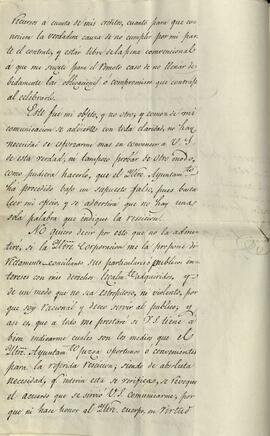 recursos á cuenta de mis creditos, cuanto para que co-
nociera la verdadera causa de no cumplir por mi par
te el contrato, y estar libre de la pena convencional
á que me sugeté para el remoto caso de no llenar de-
bidamente las obligaciones ó compromisos que contrage
al celebrarlo.
Este fué mi objeto, y no otro; y como en mi
comunicacion se advierte con toda claridad, no hay
necesidad de esforzarme mas en convencer á V.S.
de esta verdad, ni tampoco probar de otro modo,
como pudiera hacerlo, que el Iltre. Ayuntamto.
ha procedido bajo un supuesto falso, pues basta
leer mi oficio, y se advertirá que no hay una
sola palabra que indique la rescicion.
No quiero decir por esto que no la admi-
tiré, si la Iltre. Corporacion me la propone di-
rectamente, conciliando sus particulares ó publicos in-
tereses con mis derechos legalmte. adquiridos, y
de un modo que no sea estrepitoso, ni violento, por
que soy racional y deseo servir al publico; y
asi es, que á todo me prestaré si V.S. tiene á
bien indicarme cuales son los medios que el
Iltre. Ayuntamto. juzga oportunos ó convenientes
para la referida rescicion, siendo de absoluta
necesidad, q. interin esta se verifica, se revoque
el acuerdo que se sirvió V.S. comunicarme, por
que ni hace honor al Iltre. cuerpo, en virtud